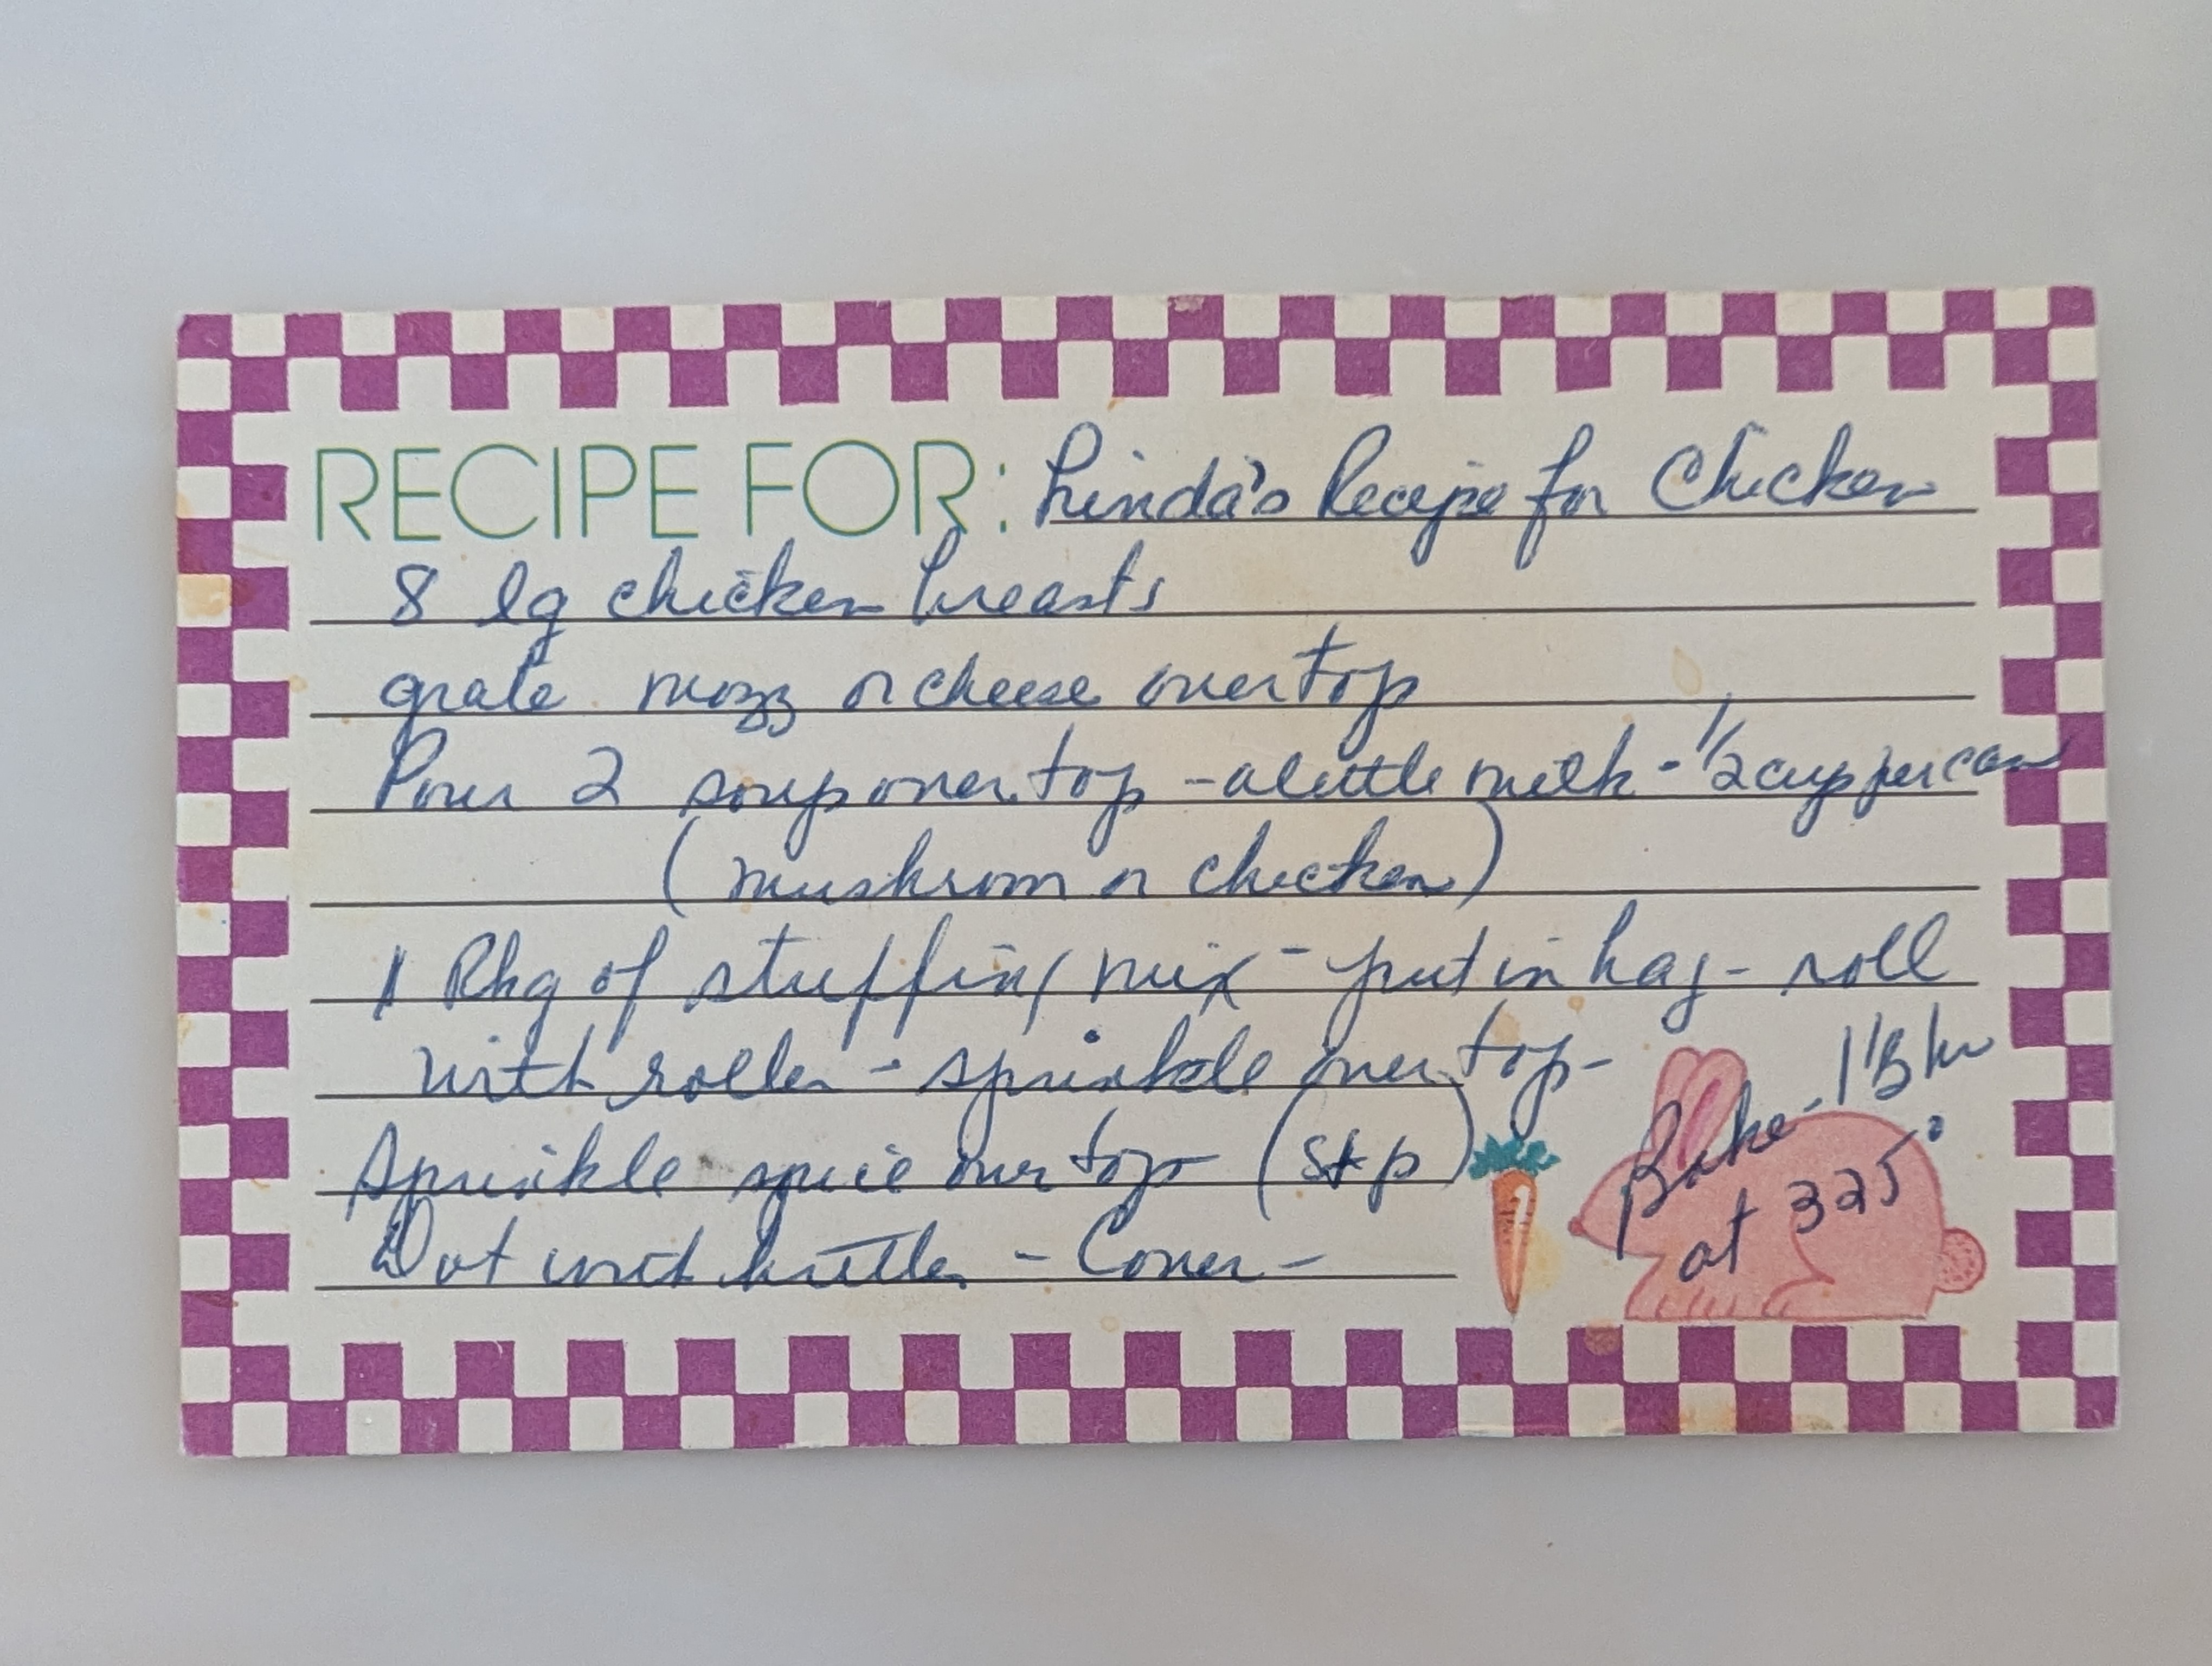 RECIPE FOR: Linda's Recipe for Chicken
8 lg chicken breasts
grate mozz or cheese over top
Pour 2 soup over top - a little milk - 1/2 cup per can
(mushroom or chicken)
1 Pkg of stuffing mix - put in bag - roll
with roller - sprinkle over top -
Sprinkle spice over top (s+p)
Dot with butter - Cover -
Bake - 1 hr
at 325°